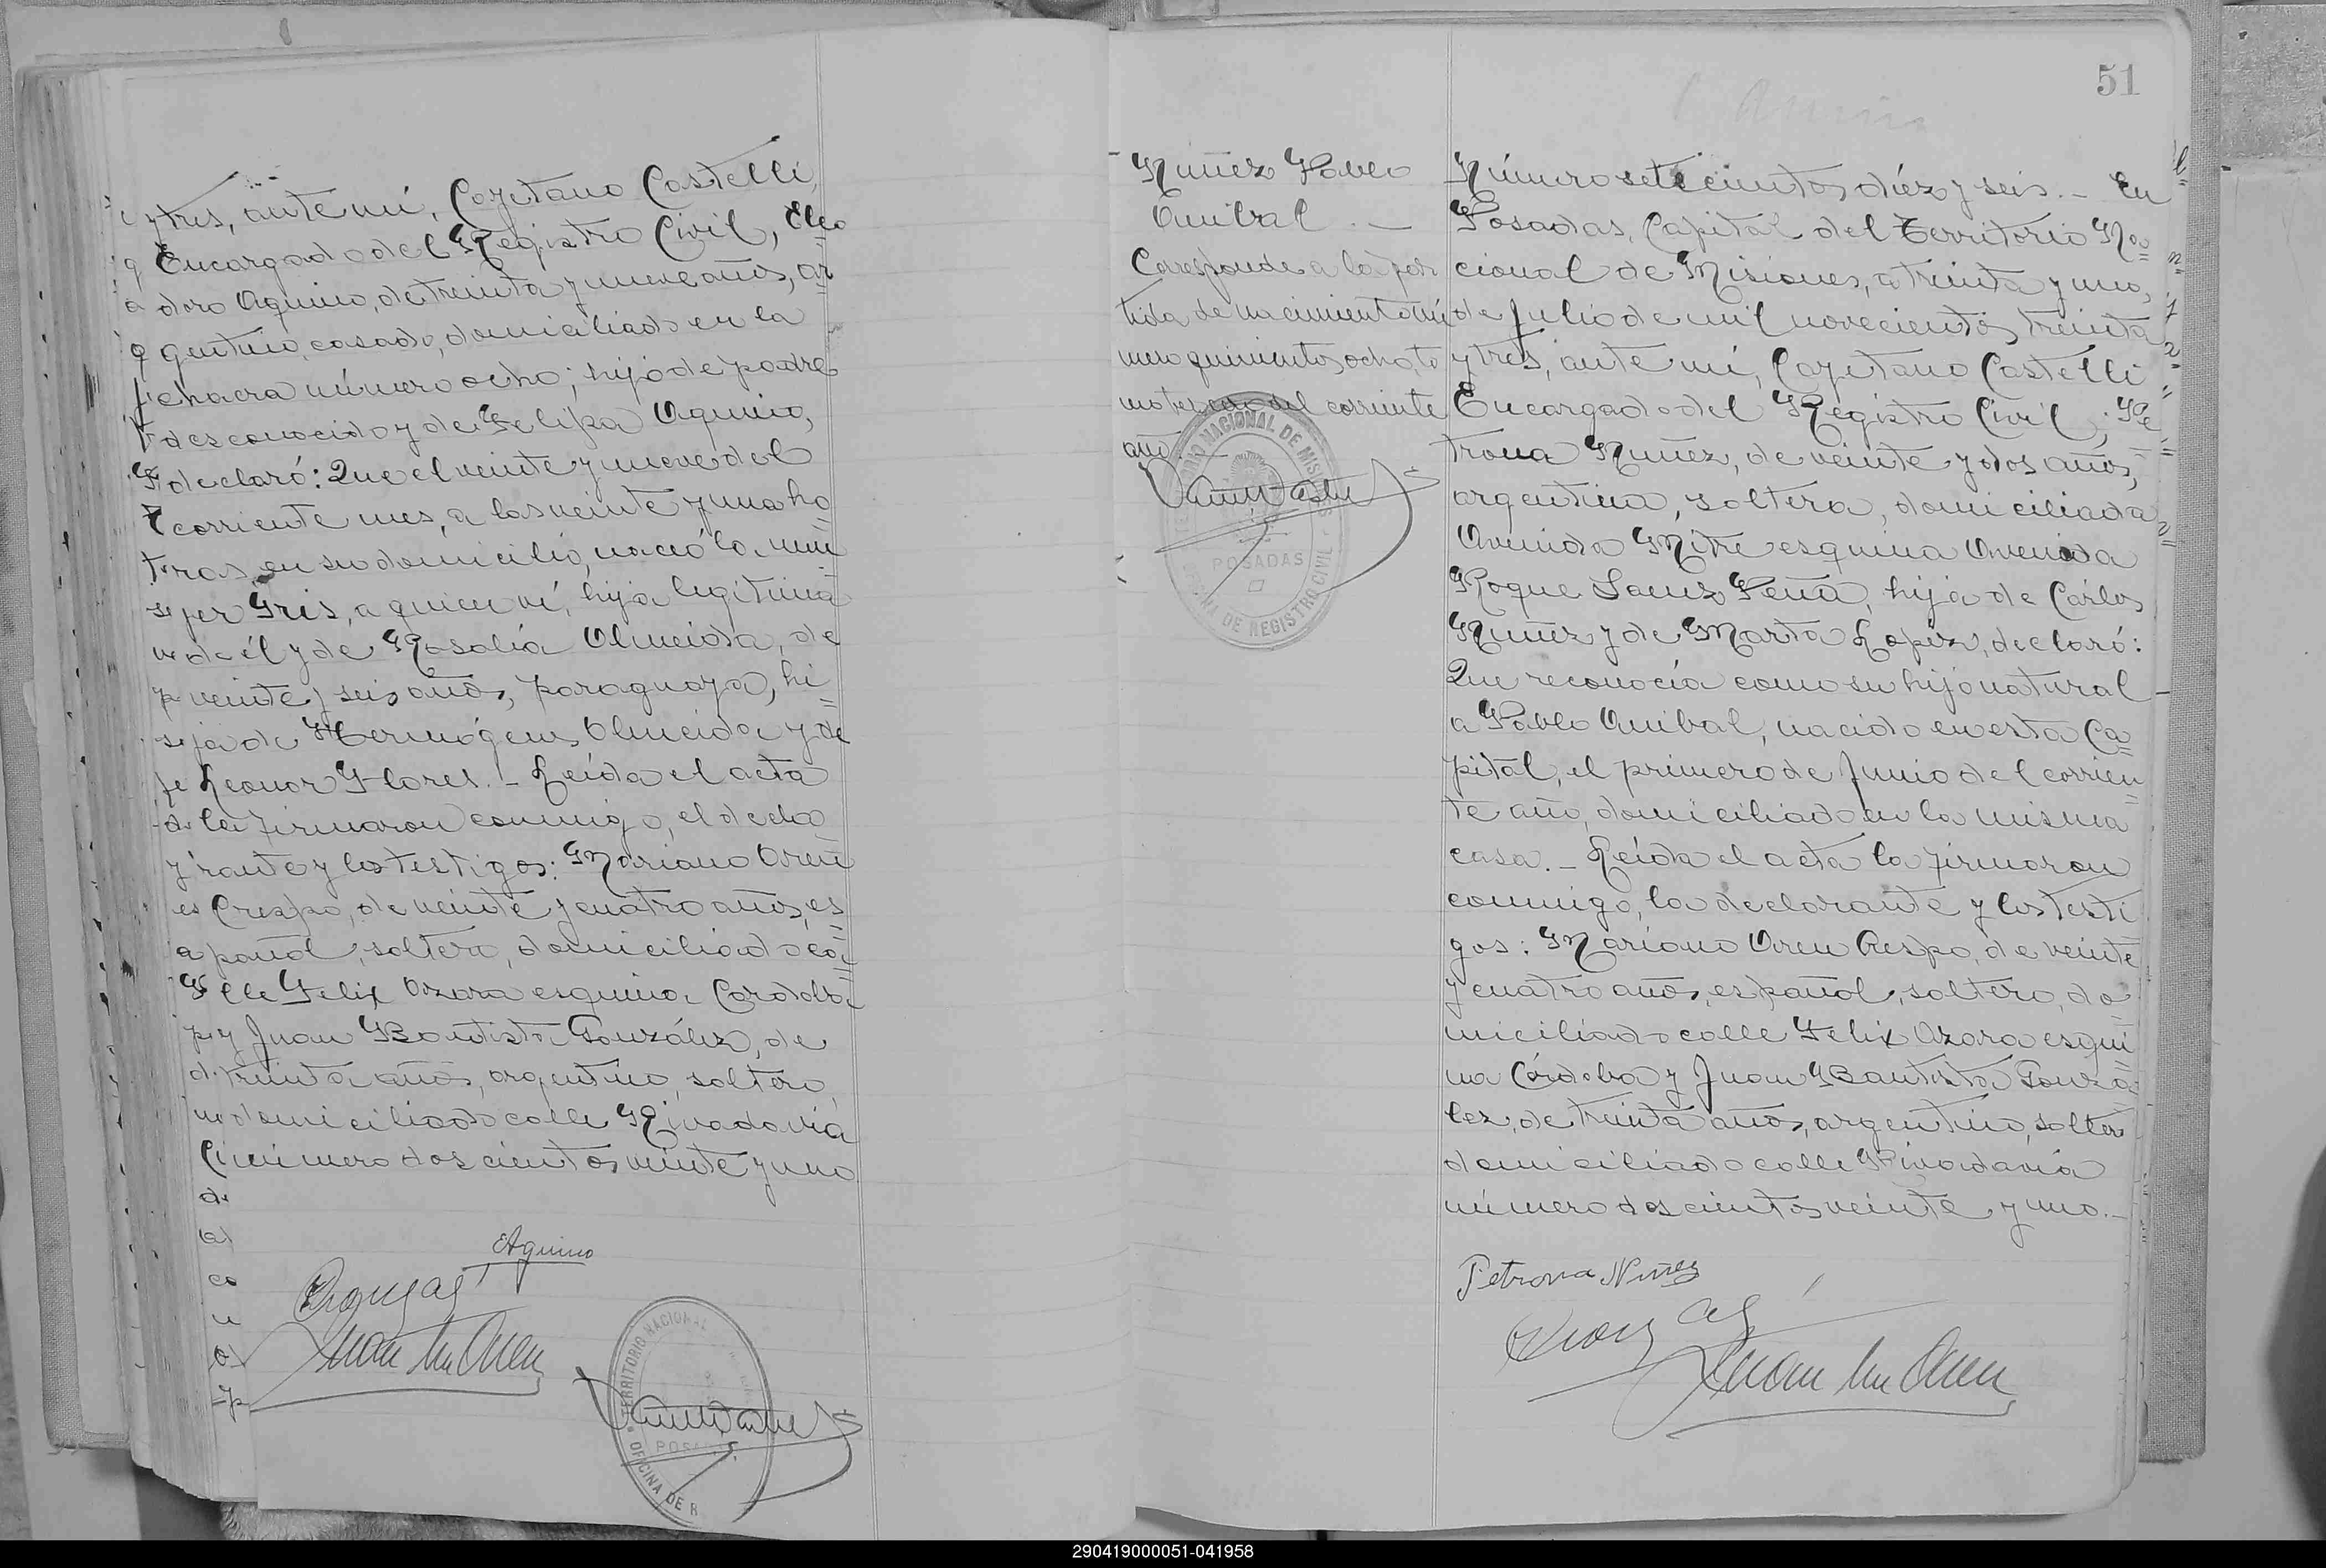 y tres, ante mí, Cayetano Castelli,
Encargado del Registro Civil, Eleo
doro Aquino, de treinta y nueve años, ar
gentino, casado, domiciliado en la
chacra número ocho; hijo de padre
desconocido y de Felipa Aquino,
declaró: Que el veinte y nueve del
corriente mes, a las veinte y una ho
ras, en su domicilio, nació la mu
jer Iris, a quien ví, hija legítima
de él y de Rosalía Olmeida, de
veinte y seis años, paraguaya, hi
ja de Hermógenes Olmeida y de
Leonor Flores. - Leída el acta
la firmaron conmigo, el decla
rante y los testigos: Mariano Oren
Crespo, de veinte y cuatro años, es
pañol, soltero, domiciliado ca
lle Felix Azara esquina Cordoba
y Juan Bautista González, de
treinta años, argentino, soltero,
domiciliado calle Rivadavia
número doscientos veinte y uno
Aquino
TERRITORIO NACIONAL
OFICINA DE R
51
Nuñez Pablo
Anibal. -
Corresponde a la par
tida de nacimiento nú
mero quinientos ocho, to
mo tercero del corriente
año
TERRITORIO NACIONAL DE MISIONES
POSADAS
OFICINA DE REGISTRO CIVIL
Número setecientos diéz y seis. - En
Posadas, Capital del Territorio Na
cional de Misiones, a treinta y uno,
de Julio de mil novecientos treinta
y tres, ante mí, Cayetano Castelli
Encargado del Registro Civil, Pe
trona Nuñez, de veinte y dos años,
argentina, soltera, domiciliada
Avenida Mitre esquina Avenida
Roque Saenz Peña, hija de Cárlos
Nuñez y de Marta Lopez, declaró:
Que reconocía como su hijo natural
a Pablo Anibal, nacido en esta Ca
pital, el primero de Junio del corrien
te año, domiciliado en la misma
casa. - Leída el acta la firmaron
conmigo, la declarante y los testi
gos: Mariano Oren Crespo, de veinte
y cuatro años, español, soltero, do
miciliado calle Felix Azara esqui
na Córdoba y Juan Bautista Gonzá
lez, de treinta años, argentino, soltero
domiciliado calle Rivadavia
número doscientos veinte y uno. -
Petrona Nuñez
290419000051-041958